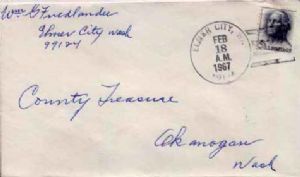 Wm G Friedlander
Elmer City Wash
99124
ELMER CITY, W
FEB
18
A.M.
1967
County Treasure
Okanogan
Wash